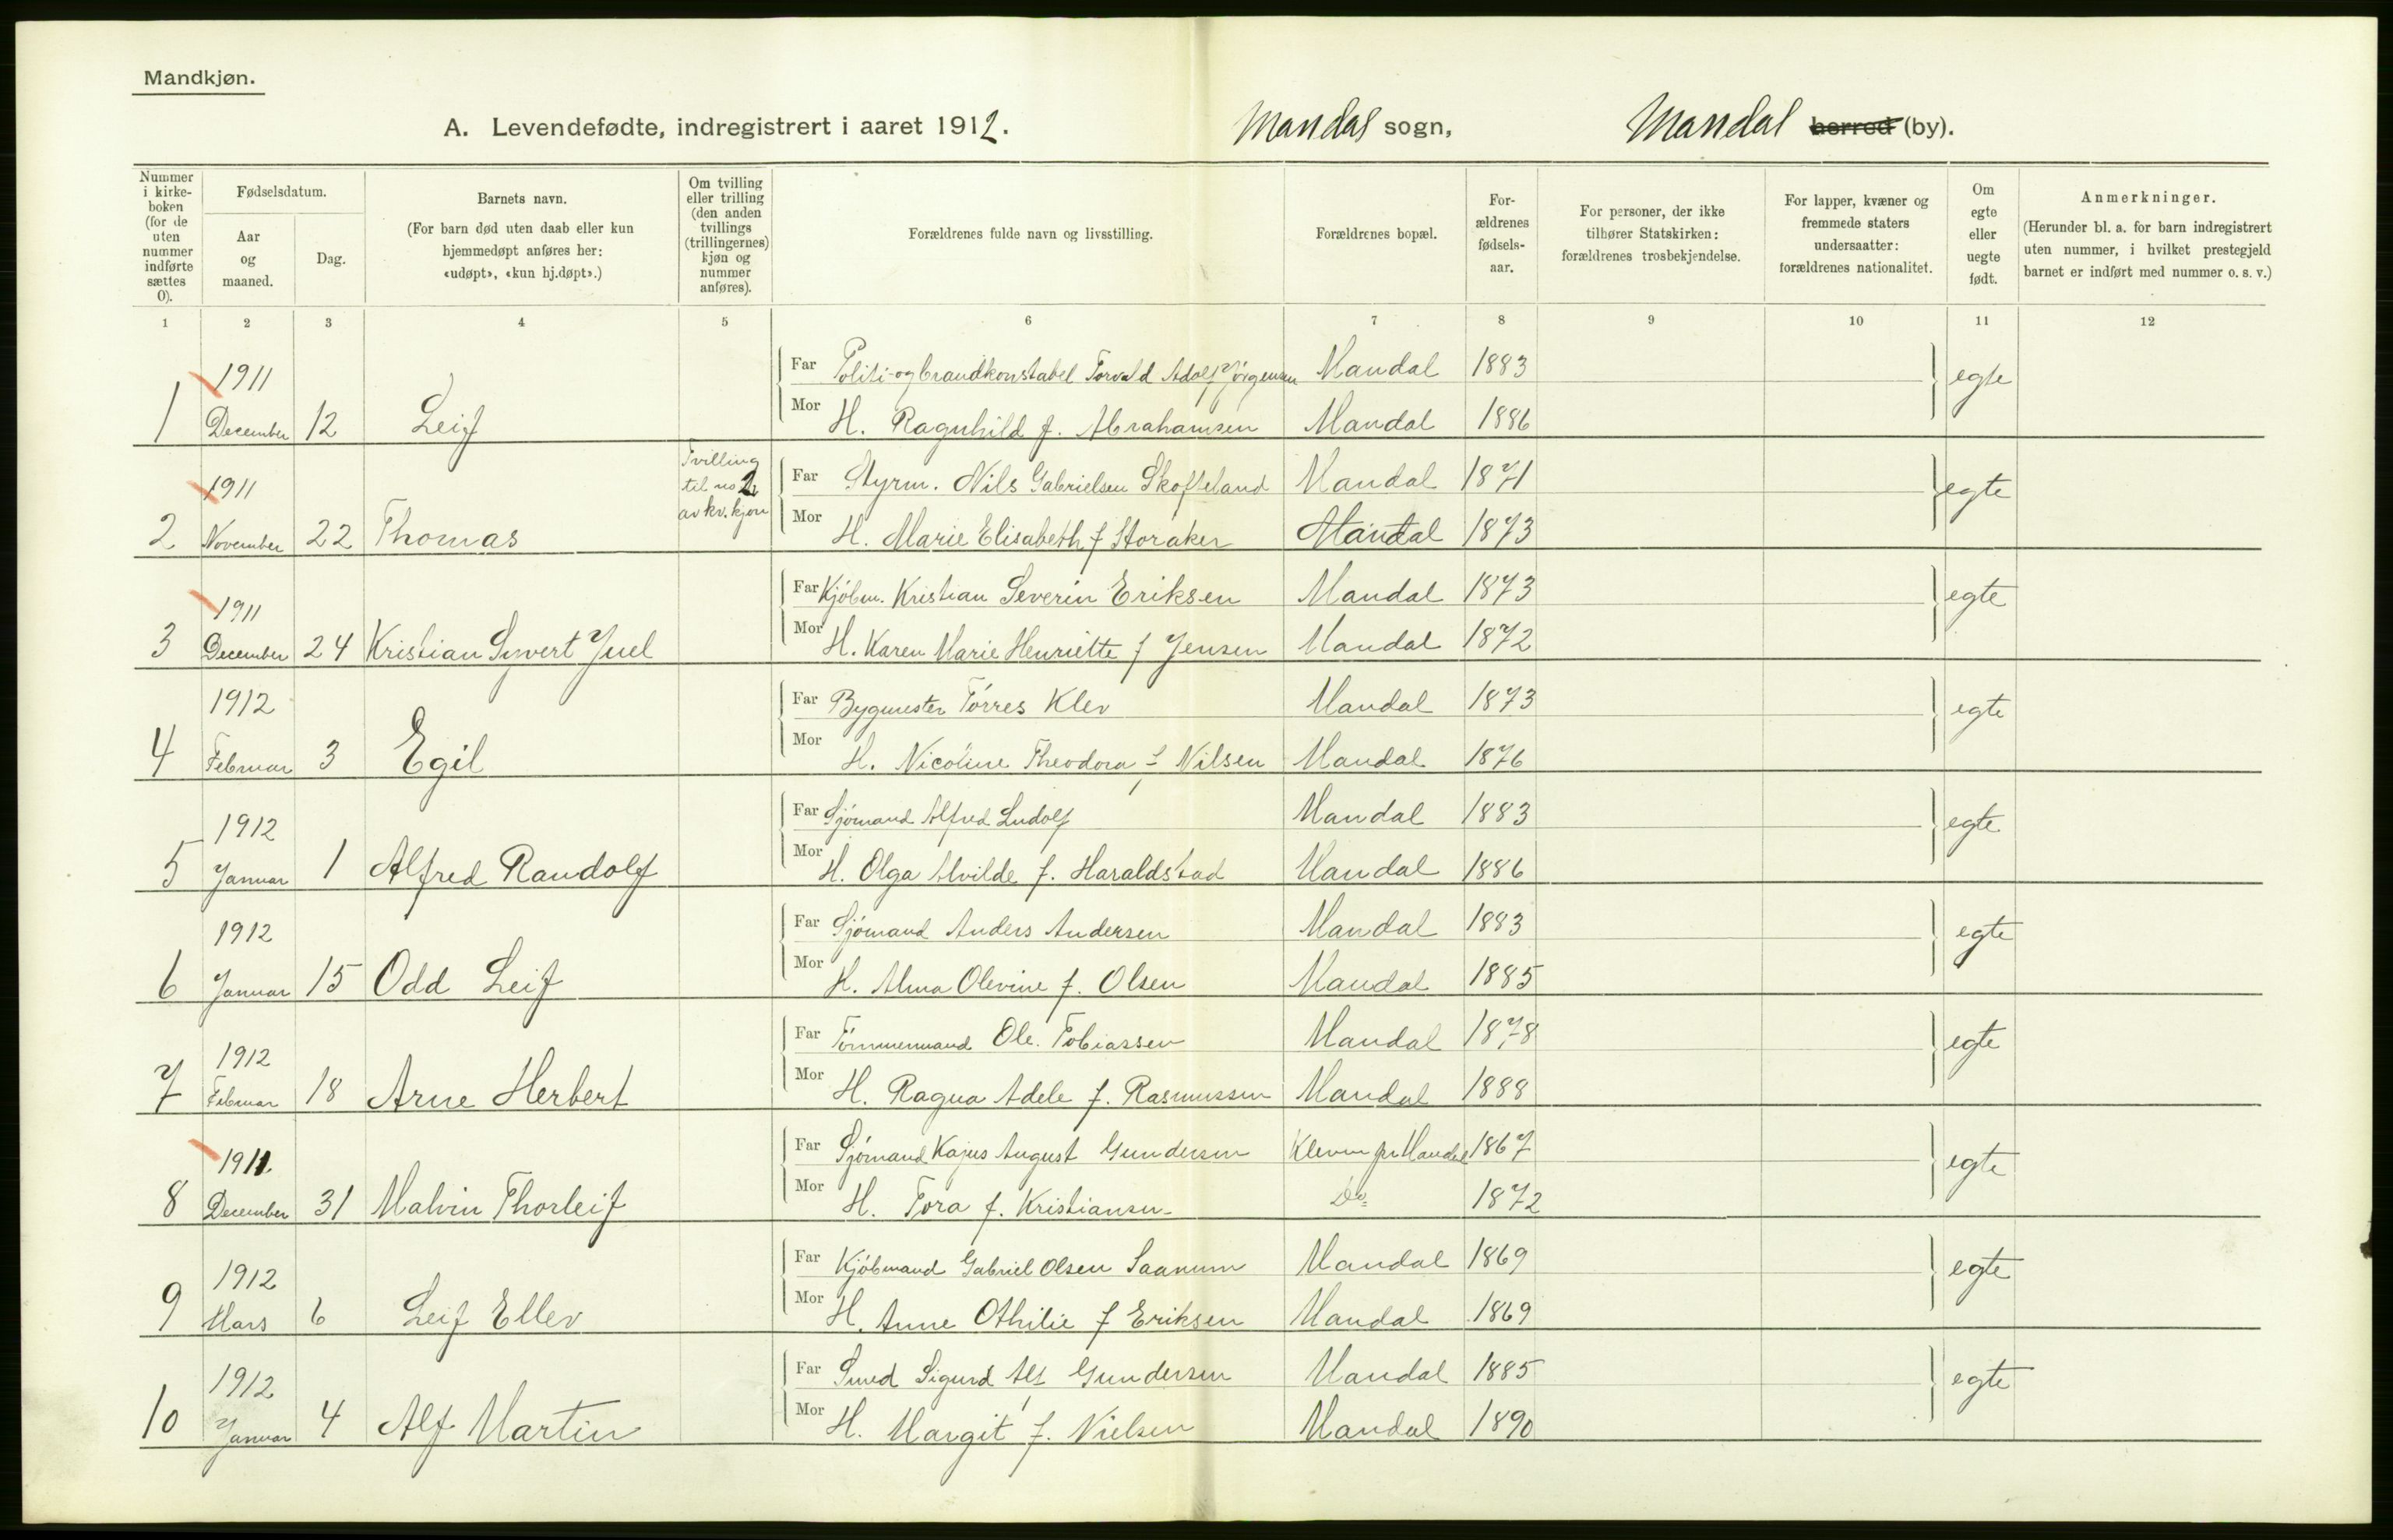 Mandkjøn.
A. Levendefødte, indregistrert i aaret 1912. Mandal sogn, Mandal herred (by).
Nummer i kirkeboken (for de uten nummer indførte sættes 0).
Fødselsdatum.
Aar og maaned.
Dag.
Barnets navn.
(For barn død uten daab eller kun hjemmedøpt anføres her: «udøpt», «kun hj.døpt».)
Om tvilling eller trilling (den anden tvillings (trillingernes) kjøn og nummer anføres).
Forældrenes fulde navn og livsstilling.
Forældrenes bopæl.
Forældrenes fødselsaar.
For personer, der ikke tilhører Statskirken: forældrenes trosbekjendelse.
For lapper, kvæner og fremmede staters undersaatter: forældrenes nationalitet.
Om egte eller uegte født.
Anmerkninger.
(Herunder bl. a. for barn indregistrert uten nummer, i hvilket prestegjeld barnet er indført med nummer o. s. v.)
1 2 3 4 5 6 7 8 9 10 11 12
1911 Far Politi- og brandkonstabel Torvald Adolf Jörgensen Mandal 1883 egte
1 December 12 Leif Mor H. Ragnhild f. Abrahamsen Mandal 1886
1911 Tvilling til no 2 av kv. kjøn Far Styrm. Nils Gabrielsen Skofteland Mandal 1871 egte
2 November 22 Thomas Mor H. Marie Elisabeth f Storaker Mandal 1873
1911 Far Kjöbm. Kristian Severin Eriksen Mandal 1873 egte
3 December 24 Kristian Syvert Juel Mor H. Karen Marie Henriette f Jensen Mandal 1872
1912 Far Bygmester Törres Klev Mandal 1873 egte
4 Februar 3 Egil Mor H. Nicoline Theodora f Nilsen Mandal 1876
1912 Far Sjömand Alfred Ludolf Mandal 1883 egte
5 Januar 1 Alfred Randolf Mor H. Olga Alvilde f. Haraldstad Mandal 1886
1912 Far Sjömand Anders Andersen Mandal 1883 egte
6 Januar 15 Odd Leif Mor H. Alma Olevine f. Olsen Mandal 1885
1912 Far Tömmermand Ole Tobiassen Mandal 1878 egte
7 Februar 18 Arne Herbert Mor H. Ragna Adele f. Rasmussen Mandal 1888
1911 Far Sjömand Kajus August Gundersen Kleven pr Mandal 1867 egte
8 December 31 Malvin Thorleif Mor H. Tora f. Kristiansen Do 1872
1912 Far Kjöbmand Gabriel Olsen Saanum Mandal 1869 egte
9 Mars 6 Leif Ellev Mor H. Anne Othilie f Eriksen Mandal 1869
1912 Far Smed Sigurd Alf Gundersen Mandal 1885 egte
10 Januar 4 Alf Martin Mor H. Margit f. Nielsen Mandal 1890